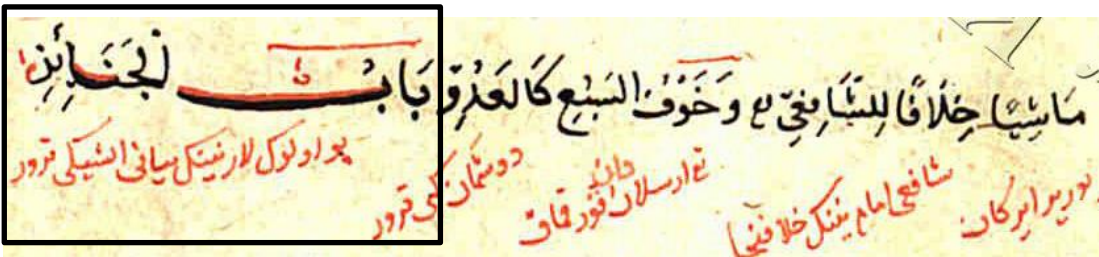 مَاشِيًا خِلَافًا لِلشَّافِعِيِّ رح وَخَوْفُ السَّبُعِ كَالعَدُوِّ بَابُ الْجَنَائِزِ
يوريير ايركان شافعى امام نينك خلافيچا تقى ارسلان دان قورقماق دوشمان كى ترور بو اولوك لارنينك بيانى ترور